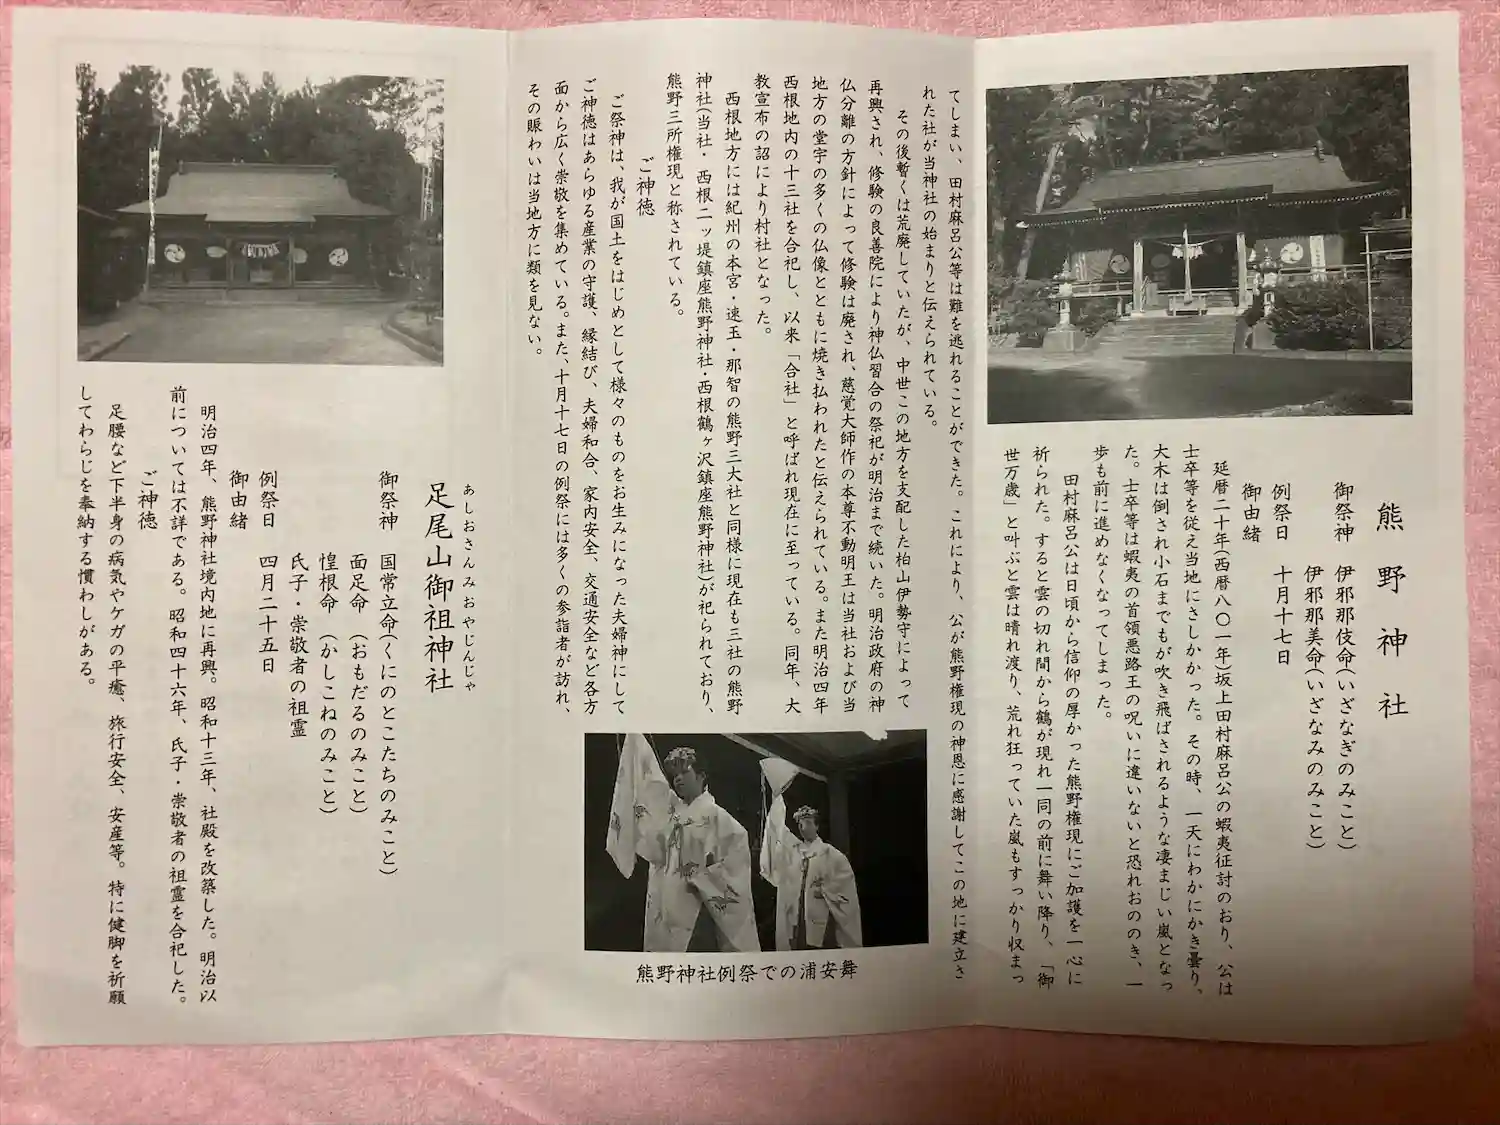 熊野神社
御祭神　伊邪那伎命(いざなぎのみこと)
伊邪那美命(いざなみのみこと)
例祭日　十月十七日
御由緒
延暦二十年(西暦八〇一年)坂上田村麻呂公の蝦夷征討のおり、公は
士卒等を従え当地にさしかかった。その時、一天にわかにかき曇り、
大木は倒され小石までもが吹き飛ばされるような凄まじい嵐となっ
た。士卒等は蝦夷の首領悪路王の呪いに違いないと恐れおののき、一
歩も前に進めなくなってしまった。
田村麻呂公は日頃から信仰の厚かった熊野権現にご加護を一心に
祈られた。すると雲の切れ間から鶴が現れ一同の前に舞い降り、「御
世万歳」と叫ぶと雲は晴れ渡り、荒れ狂っていた嵐もすっかり収まっ
てしまい、田村麻呂公等は難を逃れることができた。これにより、公が熊野権現の神恩に感謝してこの地に建立さ
れた社が当神社の始まりと伝えられている。
その後暫くは荒廃していたが、中世この地方を支配した柏山伊勢守によって
再興され、修験の良善院により神仏習合の祭祀が明治まで続いた。明治政府の神
仏分離の方針によって修験は廃され、慈覚大師作の本尊不動明王は当社および当
地方の堂宇の多くの仏像とともに焼き払われたと伝えられている。また明治四年
西根地内の十三社を合祀し、以来「合社」と呼ばれ現在に至っている。同年、大
教宣布の詔により村社となった。
西根地方には紀州の本宮・速玉・那智の熊野三大社と同様に現在も三社の熊野
神社(当社・西根二ッ堤鎮座熊野神社・西根鶴ヶ沢鎮座熊野神社)が祀られており、
熊野三所権現と称されている。
ご神徳
ご祭神は、我が国土をはじめとして様々のものをお生みになった夫婦神にして
ご神徳はあらゆる産業の守護、縁結び、夫婦和合、家内安全、交通安全など各方
面から広く崇敬を集めている。また、十月十七日の例祭には多くの参詣者が訪れ、
その賑わいは当地方に類を見ない。
熊野神社例祭での浦安舞
あしおさんみおやじんじゃ
足尾山御祖神社
御祭神　国常立命(くにのとこたちのみこと)
面足命　(おもだるのみこと)
惶根命　(かしこねのみこと)
氏子・崇敬者の祖霊
例祭日　四月二十五日
御由緒
明治四年、熊野神社境内地に再興。昭和十三年、社殿を改築した。明治以
前については不詳である。昭和四十六年、氏子・崇敬者の祖霊を合祀した。
ご神徳
足腰など下半身の病気やケガの平癒、旅行安全、安産等。特に健脚を祈願
してわらじを奉納する慣わしがある。